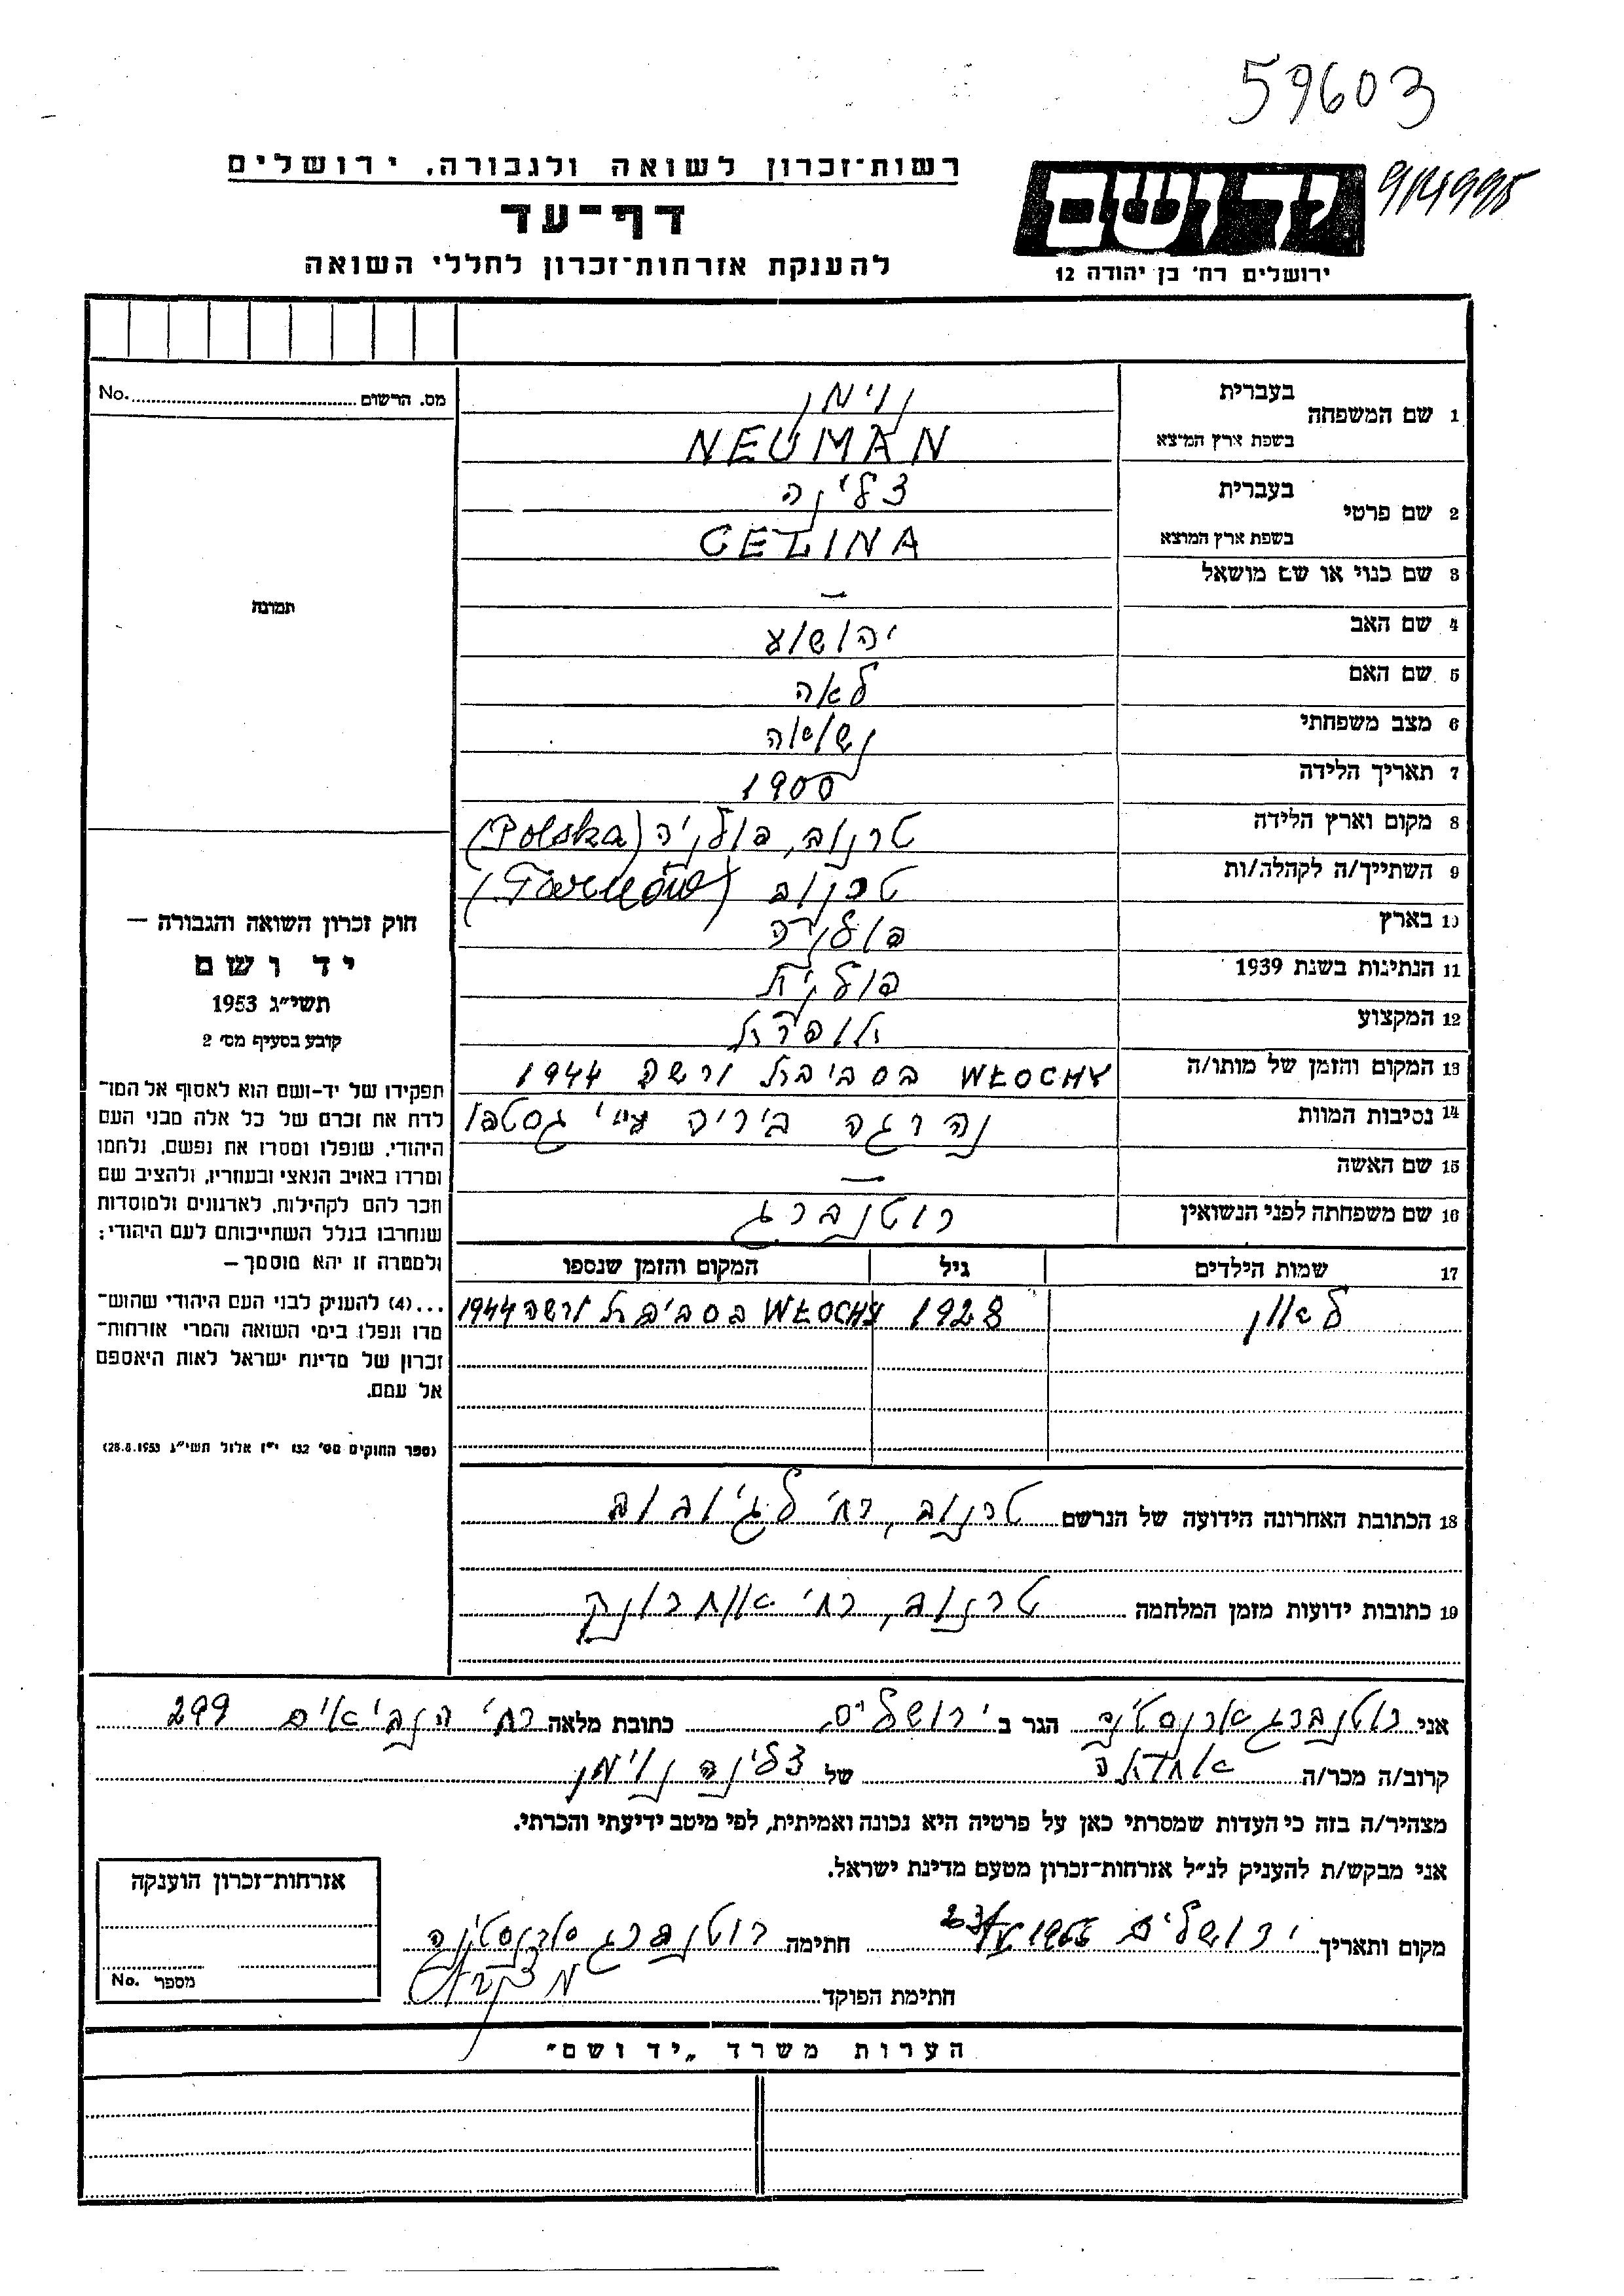 59603
רשות־זכרון לשואה ולגבורה, ירושלים
יד ושם
דף־עד
להענקת אזרחות־זכרון לחללי השואה
ירושלים רח' בן יהודה 12
מס. הרשום No.
1 שם המשפחה בעברית נוימן
בשפת ארץ המוצא NEUMAN
2 שם פרטי בעברית צלינה
בשפת ארץ המוצא CELINA
3 שם כנוי או שם מושאל —
תמונה
4 שם האב יהושע
5 שם האם לאה
6 מצב משפחתי נשואה
7 תאריך הלידה 1900
8 מקום וארץ הלידה טרנוב, פולניה (Polska)
9 השתייך/ה לקהלה/ות טרנוב (Tarnów)
10 בארץ פולניה
11 הנתינות בשנת 1939 פולנית
12 המקצוע תופרת
13 המקום והזמן של מותו/ה WŁOCHY בסביבת ורשה 1944
14 נסיבות המוות נהרגה ביריה ע״י גסטפו
15 שם האשה —
16 שם משפחתה לפני הנשואין רוטנברג
17 שמות הילדים גיל המקום והזמן שנספו
לאון 1928 WŁOCHY בסביבת ורשה 1944
חוק זכרון השואה והגבורה —
יד ושם
תשי״ג 1953
קובע בסעיף מס׳ 2
תפקידו של יד-ושם הוא לאסוף אל המו־
לדת את זכרם של כל אלה מבני העם
היהודי, שנפלו ומסרו את נפשם, נלחמו
ומרדו באויב הנאצי ובעוזריו, ולהציב שם
וזכר להם לקהילות, לארגונים ולמוסדות
שנחרבו בגלל השתייכותם לעם היהודי;
ולמטרה זו יהא מוסמך —
...(4) להעניק לבני העם היהודי שהוש־
מדו ונפלו בימי השואה והמרי אזרחות־
זכרון של מדינת ישראל לאות היאספם
אל עמם.
(ספר החוקים מס׳ 132 י״ז אלול תשי״ג 28.8.1953)
18 הכתובת האחרונה הידועה של הנרשם טרנוב, רח׳
19 כתובות ידועות מזמן המלחמה טרנוב, רח׳
אני רוטנברג ארנסטינה הגר ב ירושלים כתובת מלאה רח׳ הנביאים 299
קרוב/ה מכר/ה של צלינה נוימן
מצהיר/ה בזה כי העדות שמסרתי כאן על פרטיה היא נכונה ואמיתית, לפי מיטב ידיעתי והכרתי.
אני מבקש/ת להעניק לנ״ל אזרחות־זכרון מטעם מדינת ישראל.
מקום ותאריך ירושלים חתימה רוטנברג ארנסטינה
חתימת הפוקד
אזרחות־זכרון הוענקה
מספר No.
הערות משרד „יד ושם״